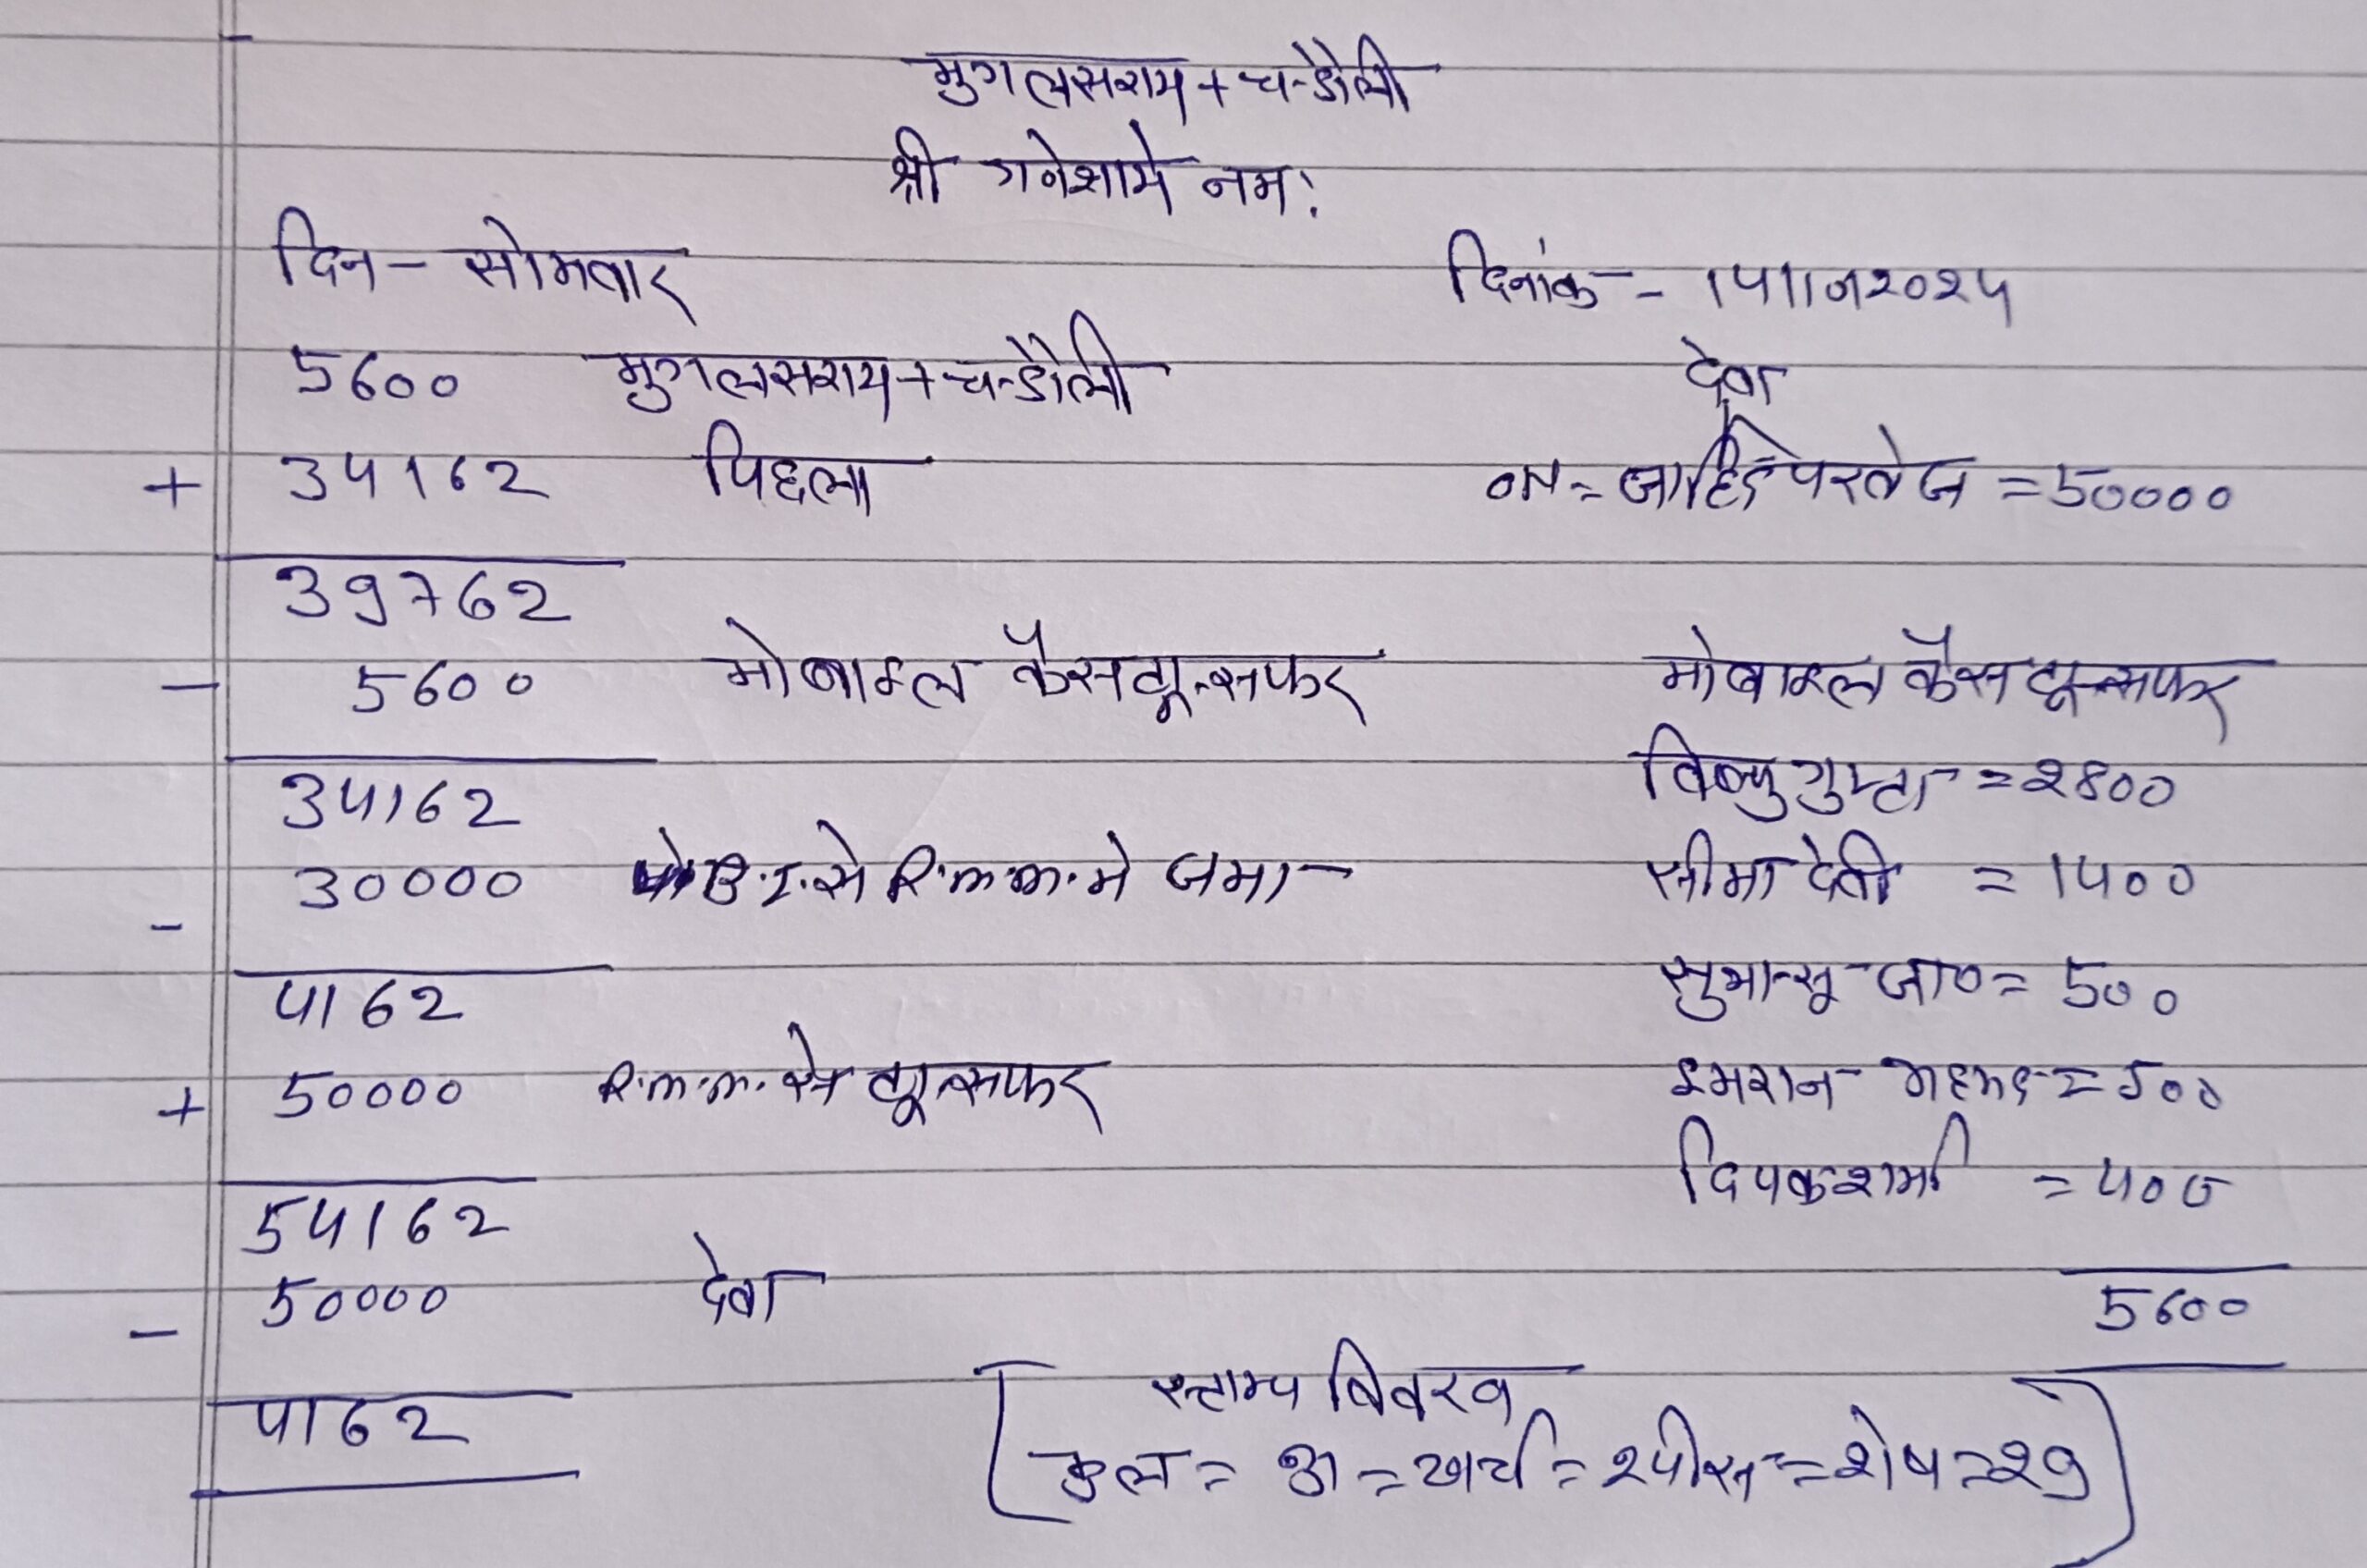 मुगलसराय + चन्डौली
श्री गनेशाये नमः
दिन - सोमवार दिनांक -
5600 मुगलसराय + चन्डौली देवा
+ 34162 पिछला जाहिद परवेज = 50000
39762
- 5600 मोबाइल कैस ट्रान्सफर मोबाइल कैस ट्रान्सफर
34162 विष्णु गुप्ता = 2800
- 30000 B.I. से R.m.m. मे जमा सीमा देवी = 1400
4162 = 500
+ 50000 R.m.m. से ट्रान्सफर इमरान अहमद = 500
54162 दिपक शर्मा = 400
- 50000 देवा 5600
4162 [ स्टाम्प विवरण
कुल = = खर्च = 2 पीस = शेष = 29 ]